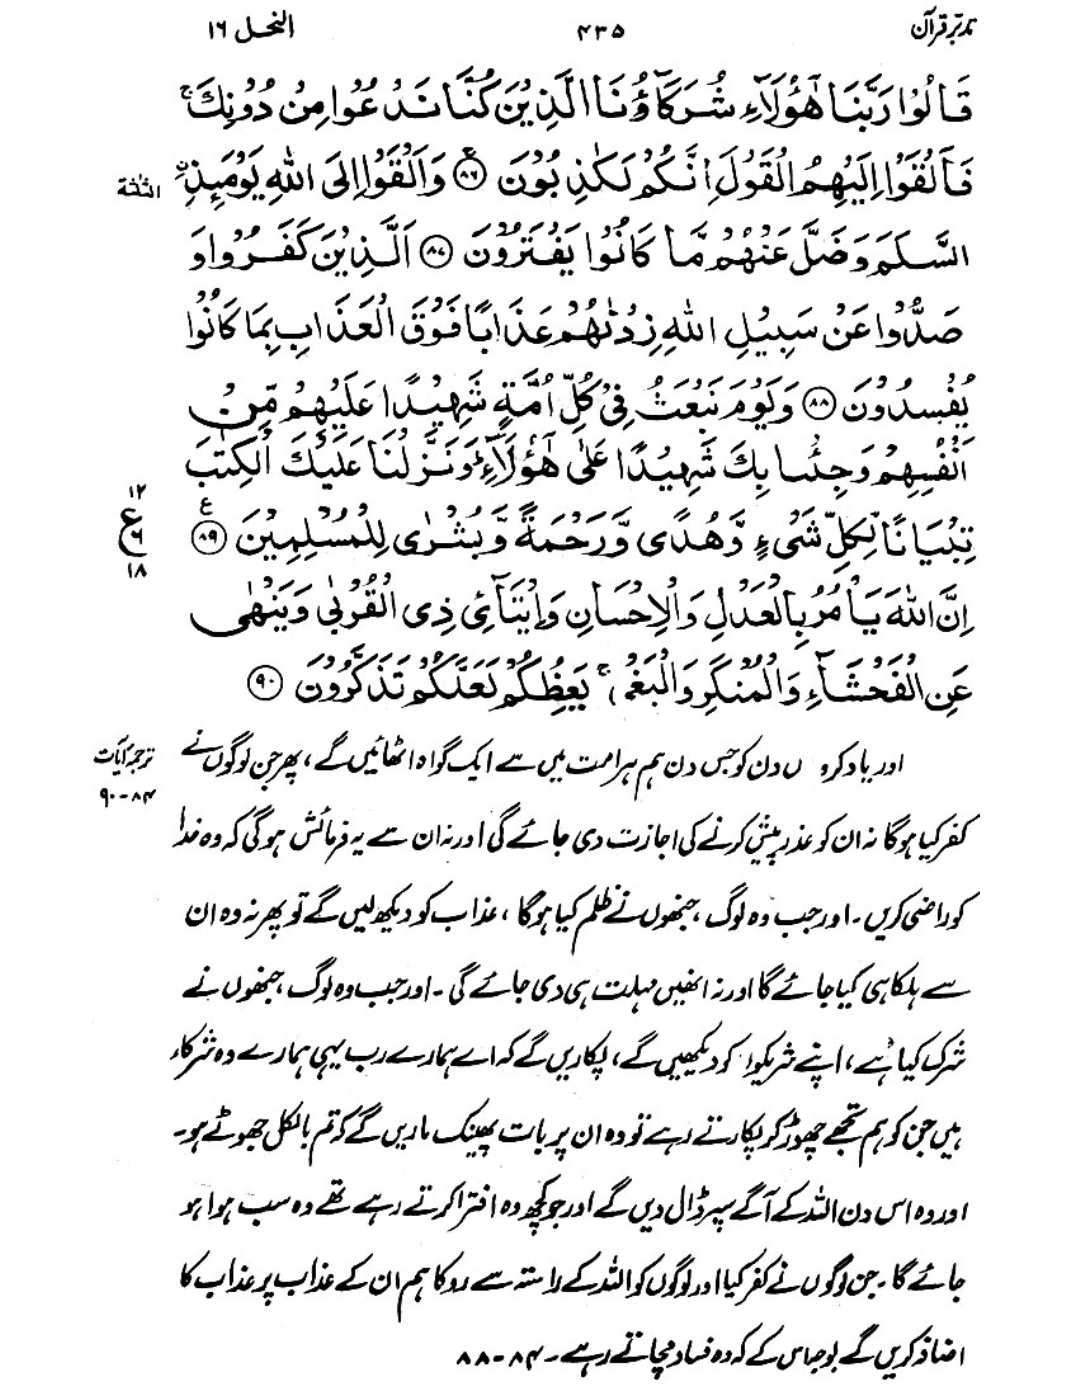 تدبر قرآن ۴۳۵ النحل ۱۶
قَالُوْا رَبَّنَا هٰٓؤُلَآءِ شُرَكَآؤُنَا الَّذِيْنَ كُنَّا نَدْعُوْا مِنْ دُوْنِكَ ۚ
فَاَلْقَوْا اِلَيْهِمُ الْقَوْلَ اِنَّكُمْ لَكٰذِبُوْنَ ۚ ﴿۸۶﴾ وَاَلْقَوْا اِلَى اللّٰهِ يَوْمَىِٕذِ ۣ
الثلثة
السَّلَمَ وَضَلَّ عَنْهُمْ مَّا كَانُوْا يَفْتَرُوْنَ ﴿۸۷﴾ اَلَّذِيْنَ كَفَرُوْا وَ
صَدُّوْا عَنْ سَبِيْلِ اللّٰهِ زِدْنٰهُمْ عَذَابًا فَوْقَ الْعَذَابِ بِمَا كَانُوْا
يُفْسِدُوْنَ ﴿۸۸﴾ وَيَوْمَ نَبْعَثُ فِيْ كُلِّ اُمَّةٍ شَهِيْدًا عَلَيْهِمْ مِّنْ
اَنْفُسِهِمْ وَجِئْنَا بِكَ شَهِيْدًا عَلٰى هٰٓؤُلَآءِ ۭ وَنَزَّلْنَا عَلَيْكَ الْكِتٰبَ
تِبْيَانًا لِّكُلِّ شَيْءٍ وَّهُدًى وَّرَحْمَةً وَّبُشْرٰى لِلْمُسْلِمِيْنَ ﴿۸۹﴾ ع
۱۲
ع
۶
۱۸
اِنَّ اللّٰهَ يَاْمُرُ بِالْعَدْلِ وَالْاِحْسَانِ وَاِيْتَآئِ ذِي الْقُرْبٰى وَيَنْهٰى
عَنِ الْفَحْشَآءِ وَالْمُنْكَرِ وَالْبَغْيِ ۚ يَعِظُكُمْ لَعَلَّكُمْ تَذَكَّرُوْنَ ﴿۹۰﴾
ترجمۂ آیات
۸۴-۹۰
اور یاد کرو دن کو جس دن ہم ہر امت میں سے ایک گواہ اٹھائیں گے، پھر جن لوگوں نے
کفر کیا ہوگا نہ ان کو عذر پیش کرنے کی اجازت دی جائے گی اور نہ ان سے یہ فرمائش ہوگی کہ وہ خدا
کو راضی کریں۔ اور جب وہ لوگ، جنھوں نے ظلم کیا ہوگا، عذاب کو دیکھ لیں گے تو پھر نہ وہ ان
سے ہلکا ہی کیا جائے گا اور نہ انھیں مہلت ہی دی جائے گی۔ اور جب وہ لوگ، جنھوں نے
شرک کیا ہے، اپنے شریکوں کو دیکھیں گے، پکاریں گے کہ اے ہمارے رب یہی ہمارے وہ شرکاء
ہیں جن کو ہم تجھے چھوڑ کر پکارتے رہے تو وہ ان پر بات پھینک ماریں گے کہ تم بالکل جھوٹے ہو۔
اور وہ اس دن اللہ کے آگے سپر ڈال دیں گے اور جو کچھ وہ افترا کرتے رہے تھے وہ سب ہوا ہو
جائے گا۔ جن لوگوں نے کفر کیا اور لوگوں کو اللہ کے راستہ سے روکا ہم ان کے عذاب پر عذاب کا
اضافہ کریں گے بوجہ اس کے کہ وہ فساد مچاتے رہے۔ ۸۴-۸۸